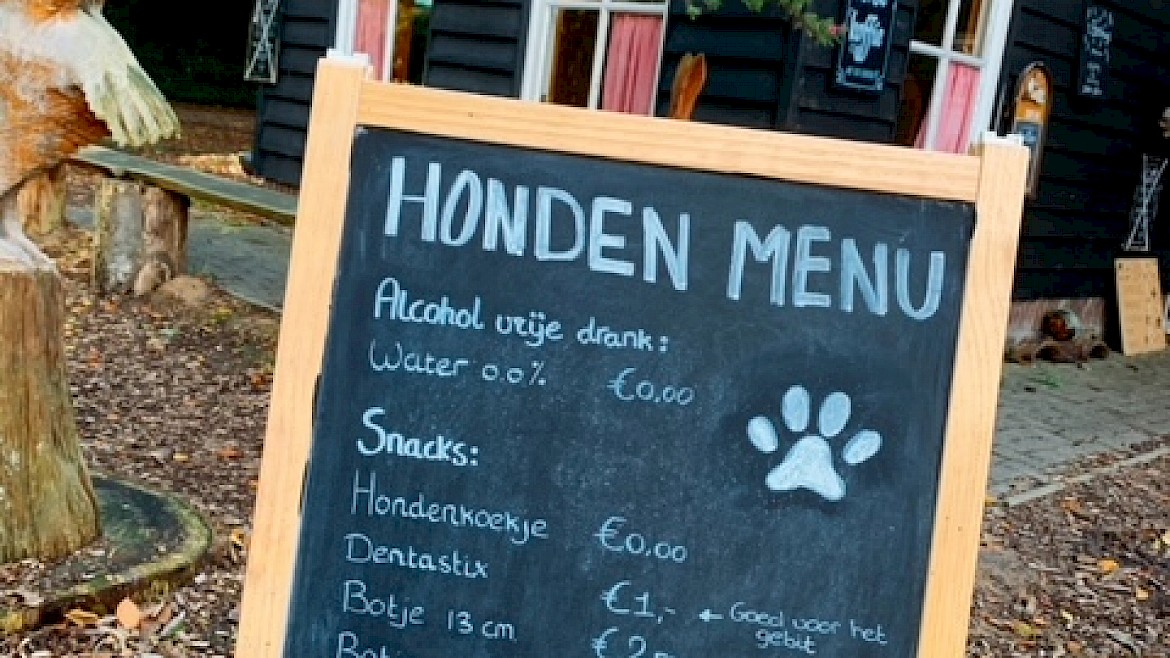 HONDEN MENU
Alcohol vrije drank:
Water 0.0% €0.00
Snacks:
Hondenkoekje €0.00
Dentastix €1,- ← Goed voor het gebit
Botje 13 cm €2,-